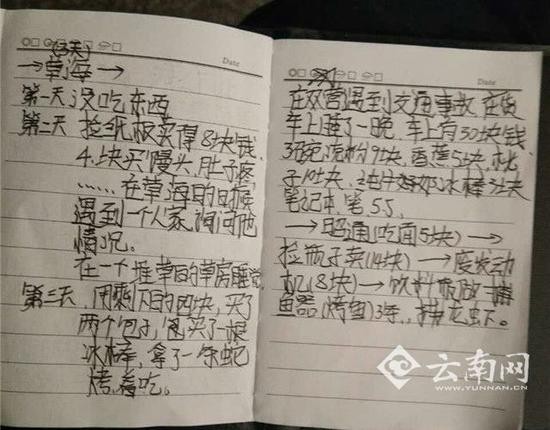 Date
(3天)
→草海→
第一天 没吃东西
第二天 捡纸板买得8块钱
4块买馒头,肚子疼
……在草海的日
遇到一个人家,询问他
情况。
在一个堆草的草房睡觉
第三天,用剩下的四块,买了
两个包子,买了一根
冰棒,拿了一条蛇
烤着吃。
Date
在双营遇到交通事故,在货
车上睡了一晚,车上有30块钱,
3碗凉粉9块,香蕉5块,桃
子10块,纯牛奶冰棒5块
笔记本笔5.5.
→昭通(吃面5块)→
捡瓶子卖(14块)→废发动
机(8块)→饮料瓶做捕
鱼器(烤鱼)3条,龙虾。
云南网
WWW.YUNNAN.CN